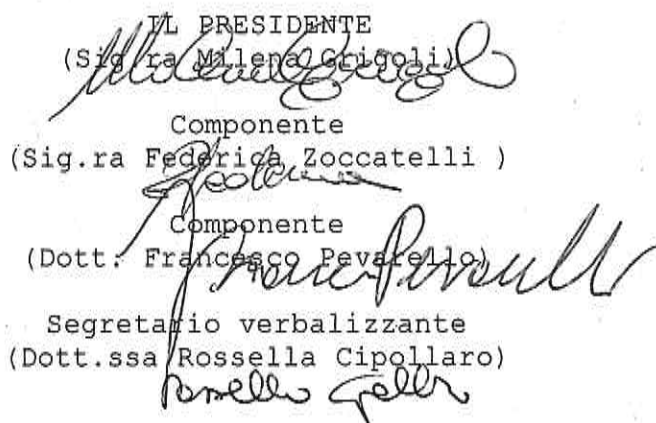 IL PRESIDENTE
(Sig.ra Milena Grigoli)
Componente
(Sig.ra Federica Zoccatelli )
Componente
(Dott. Francesco Pevarello)
Segretario verbalizzante
(Dott.ssa Rossella Cipollaro)